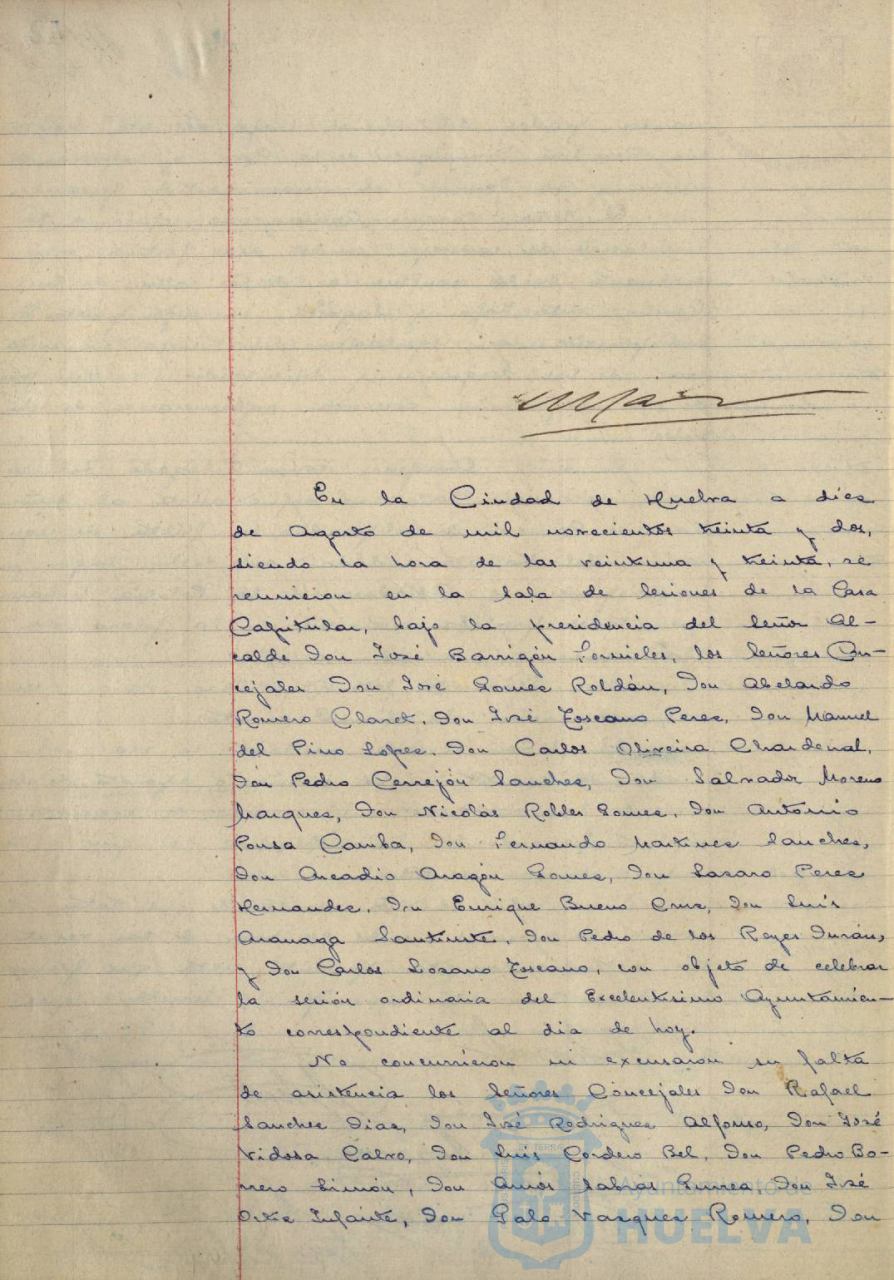 En la Ciudad de Huelva a diez
de Agosto de mil novecientos treinta y dos,
siendo la hora de las veintiuna y treinta, se
reunieron en la Sala de Sesiones de la Casa
Capitular, bajo la presidencia del Señor Al-
calde Don José Barrigón Fornieles, los Señores Con-
cejales Don José Gomez Roldán, Don Abelardo
Romero Claret, Don José Toscano Perez, Don Manuel
del Pino Lopez, Don Carlos Oliveira Chardenal,
Don Pedro Cerrejón Sanchez, Don Salvador Moreno
Marquez, Don Nicolás Robles Gomez, Don Antonio
Ponsa Camba, Don Fernando Martinez Sanchez,
Don Arcadio Aragón Gomez, Don Lazaro Perez
Hernandez, Don Enrique Bueno Cruz, Don Luís
Aranaga Santurte, Don Pedro de los Reyes Durán,
y Don Carlos Lozano Toscano, con objeto de celebrar
la sesión ordinaria del Excelentísimo Ayuntamien-
to correspondiente al dia de hoy.
No concurrieron ni excusaron su falta
de asistencia los Señores Concejales Don Rafael
Sanchez Diaz, Don José Rodriguez Alfonso, Don José
Vidosa Calvo, Don Luis Cordero Bel, Don Pedro Bo-
rrero Limón, Don Amós Sabrás Gurrea, Don José
Ortiz Infante, Don Galo Vazquez Romero, Don
Ayuntamiento de
HUELVA